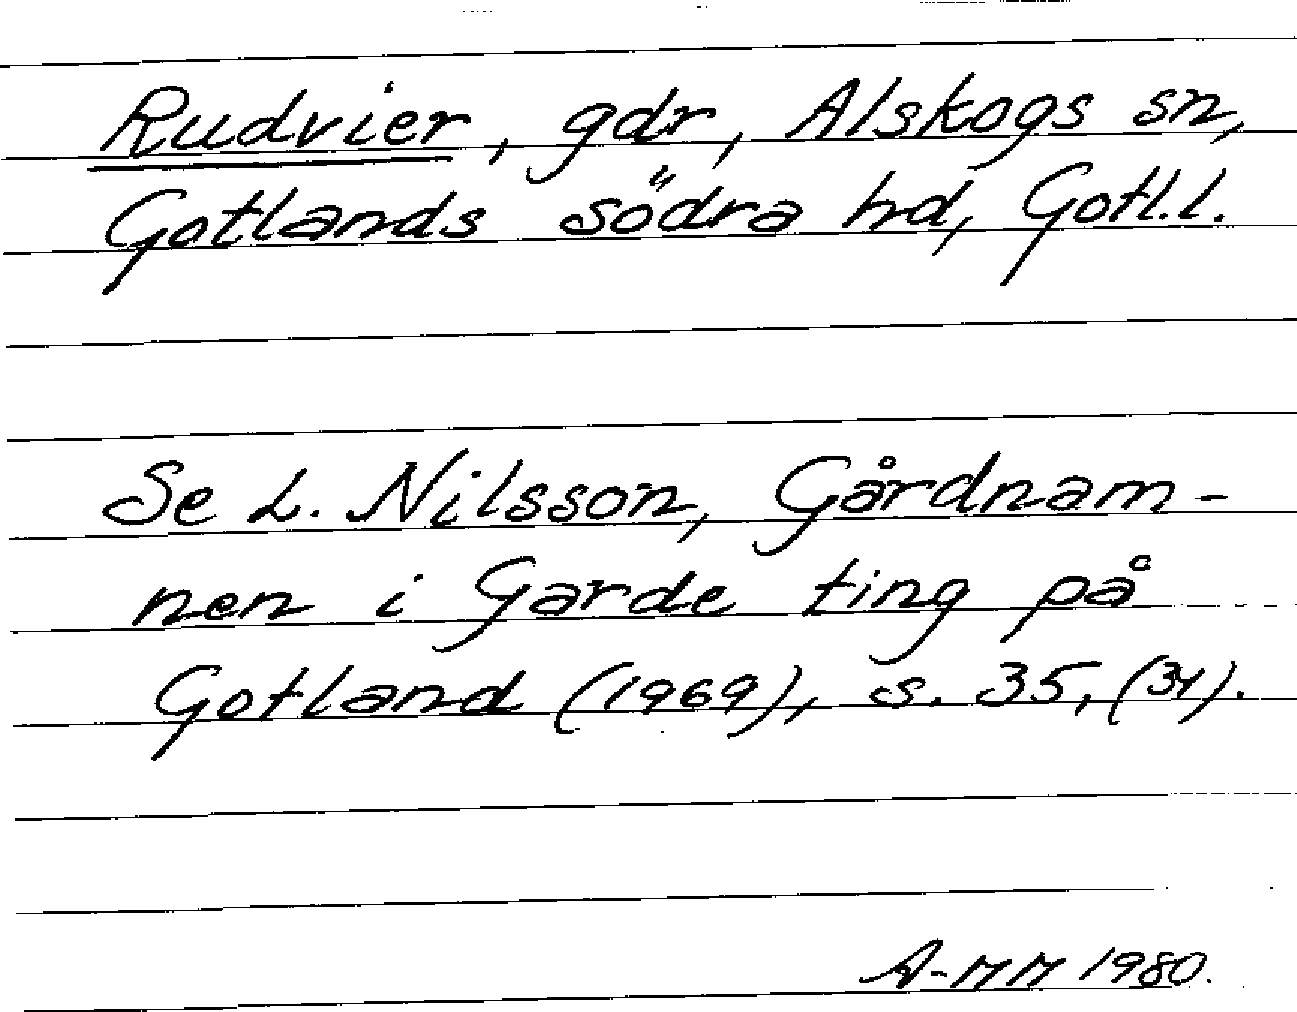 Rudvier, gdr, Alskogs sn,
Gotlands södra hd, Gotl.l.
Se L. Nilsson, Gårdnam-
nen i Garde ting på
Gotland (1969), s. 35, (34).
A-MM 1980.